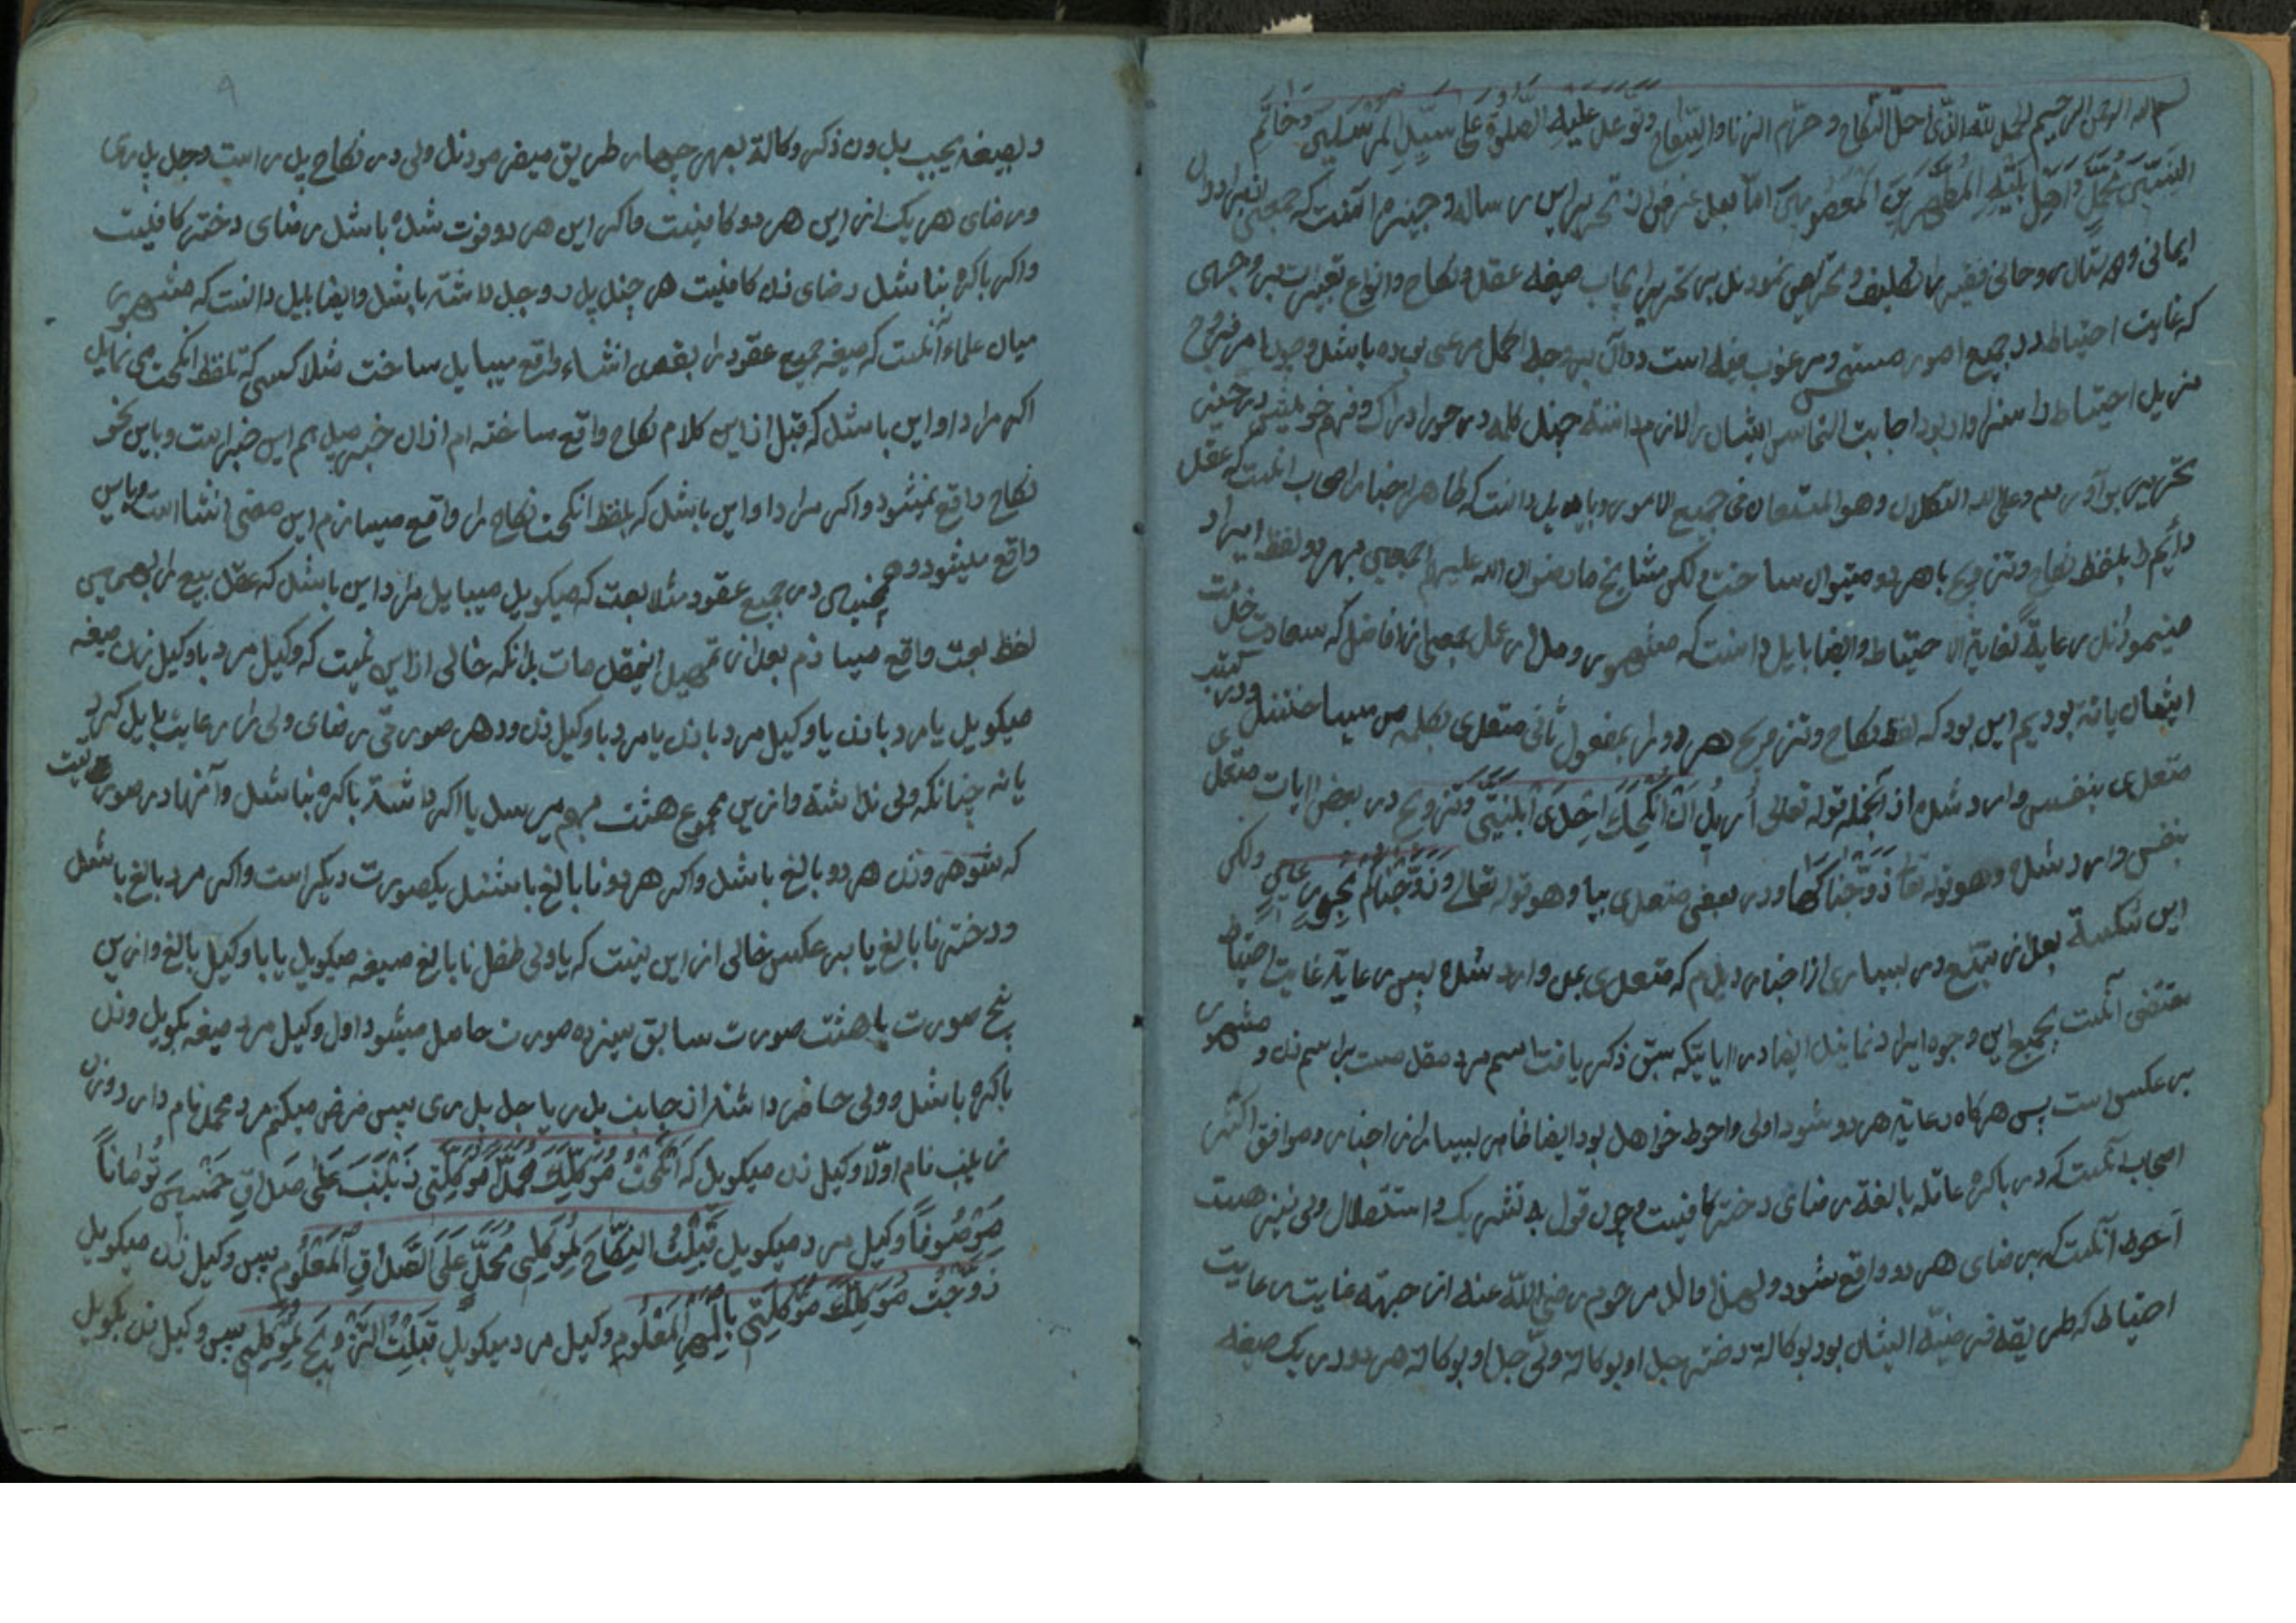 بسم الله الرحمن الرحیم الحمد لله الذی احل النکاح و حرّم الزنا و السفاح و توعد علیه الصلوة علی سیّد المرسلین و خاتم
النبیین محمّد و اهل بیته المطهرین المعصومین اما بعد غرض از تحریر این رساله وجیزه آنست که جمعی از برادران
ایمانی و دوستان روحانی فقیر را تکلیف و تحریص نمودند بر تحریر ایجاب صیغه عقد و نکاح و انواع تعبیرات بر وجهی
که غایت احتیاط در جمیع امور مستحسن و مرغوب فیه است در آن بهر جهة اکمل مرعی بوده باشد و چون امر فروج
مزید احتیاط را سزاوار بود اجابت التماس ایشان را لازم دانسته چند کلمه در خور ادراک و فهم خویش در حیّز
تحریر برآوردم و علی الله التکلان و هو المستعان فی جمیع الامور و باید دانست که ظاهر اخبار اصحاب آنست که عقد
دایم را بلفظ نکاح و تزویج با هر دو میتوان ساخت لکن مشایخ ما رضوان الله علیهم اجمعین بهر دو لفظ ایراد
مینمودند رعایة لغایة الاحتیاط و ایضا باید دانست که مشهور و مدار عمل جمعی از افاضل که سعادت خدمت
ایشان یافته بودیم این بود که لفظ نکاح و تزویج هر دو را بمفعول ثانی متعدی بکلمه من میساختند و در کتب
متعدی بنفس وارد شده از آنجمله قوله تعالی أُرِیدُ اَنْ اُنْکِحَکَ اِحْدَی ابْنَتَیَّ و تزویج در بعض ایات متعدی
بنفس وارد شده و هو قوله تعا زَوَّجْنَاکَهَا و در بعضی متعدی ببا و هو قوله تعالی وَ زَوَّجْنَاهُمْ بِحُورٍ عِینٍ و لکن
این شکسته بعد از تتبّع در بسیاری از اخبار دیدم که متعدی بمن وارد شده پس رعایة غایت احتیاط
مقتضی آنست بجمیع این وجوه ایراد نمایند ایضا در ایاتیکه سبق ذکر یافت اسم مرد مقدمست بر اسم زن و مشهور
بر عکس ست پس هر کاه رعایة هر دو شود اولی و احوط خواهد بود ایضا ظاهر بسیاری از اخبار و موافق اکثر
اصحاب آنست که در باکره عاقله بالغه رضای دختر کافیست و چون قول به تشریک و استقلال ولی نیز هست
احوط آنست که برضای هر دو واقع شود و لهذا والد مرحوم رضی الله عنه از جهة غایت رعایت
احتیاط که طریقه مرضیه ایشان بود بوکالة دختر جد او بوکالة ولّی جد او بوکالة هر دو در یک صیغه
و بصیغه یجیب بدون ذکر وکالة بهر چهار طریق میفرمودند ولی در نکاح پدر است و جد پدری
و رضای هر یک از این هر دو کافیست و اکر این هر دو فوت شده باشد رضای دختر کافیست
و اکر باکره نباشد رضای زن کافیست هر چند پدر و جد داشته باشد و ایضا باید دانست که مشهور
میان علماء آنست که صیغه جمیع عقود را بقصد انشاء واقع میباید ساخت مثلا کسی که تلفظ انکحت می نماید
اکر مراد او این باشد که قبل از این کلام نکاح واقع ساخته ام از ان خبر میدهم این خبر است و باین نحو
نکاح واقع نمیشود و اکر مراد او این باشد که بلفظ انکحت نکاح را واقع میسازم این معنی انشا است و باین
واقع میشود و همچنین در جمیع عقود مثلا بعت که میکوید میباید مراد این باشد که عقد بیع را بهمین
لفظ بعت واقع میسازم بعد از تمهید اینمقدمات بدانکه خالی از این نیست که وکیل مرد با وکیل زن صیغه
میکوید یا مرد با زن یا وکیل مرد با زن یا مرد با وکیل زن و در هر صورتی رضای ولی را رعایت باید کرد
یا نه چنانکه ولی نداشته و ازین مجموع هشت بهم میرسد یا اکر داشته باکره نباشد و آنها در صورتیست
که شوهر و زن هر دو بالغ باشد و اکر هر دو نا بالغ باشند یکصورت دیکر است و اکر مرد بالغ باشد
و دختر نا بالغ یا بر عکس خالی از این نیست که یا ولی طفل نا بالغ صیغه میکوید یا با وکیل بالغ و ازین
پنج صورت یا هشت صورت سابق سیزده صورت حاصل میشود اول وکیل مرد صیغه بکوید و زن
باکره باشد و ولی حاضر داشته از جانب پدر یا جد پدری پس فرض میکنم مرد محمد نام دارد و زن
زینب نام اولا وکیل زن میکوید که اَنْکَحْتُ مُوَکِّلَکَ مُحَمَّدٌ مُوَکِّلَتِی زَیْنَبَ عَلَی صَدَاقِ خَمْسِینَ تُومَاناً
مَوْصُوفاً وکیل مرد میکوید قَبِلْتُ النِّکَاحَ لِمُوَکِّلِی مُحَمَّدٍ عَلَی الصَّدَاقِ الْمَعْلُومِ پس وکیل زن میکوید
زَوَّجْتُ مُوَکِّلَکَ مُوَکِّلَتِی بِالْمَهْرِ الْمَعْلُومِ وکیل مرد میکوید قَبِلْتُ التَّزْوِیجَ لِمُوَکِّلِی پس وکیل زن بکوید